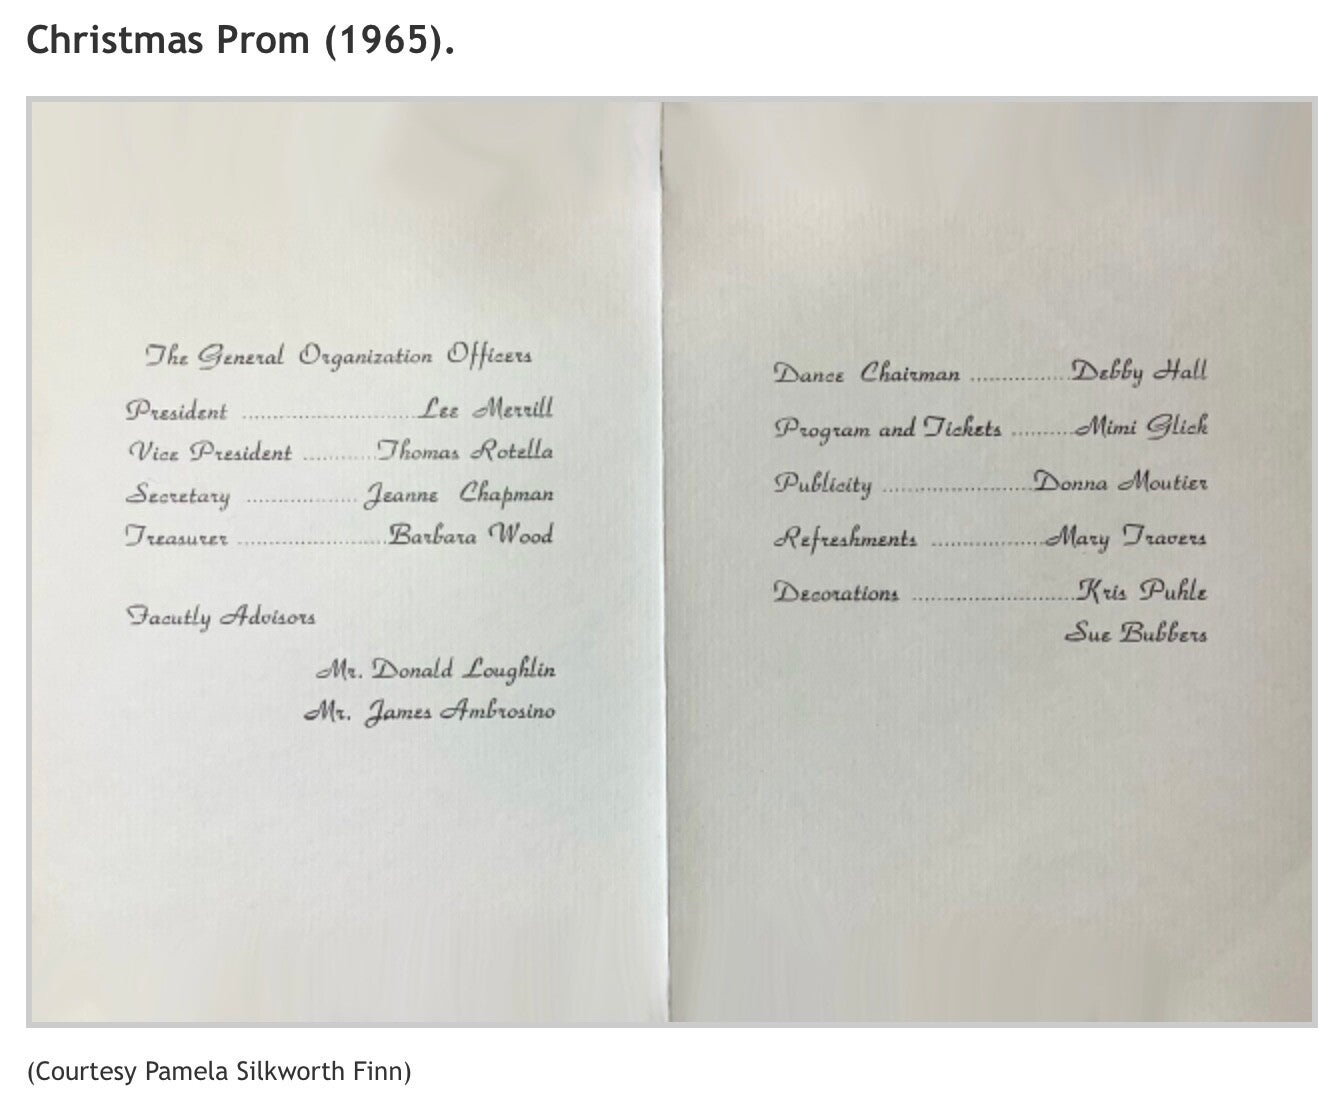 Christmas Prom (1965).
The General Organization Officers
President ........................ Lee Merrill
Vice President .......... Thomas Rotella
Secretary ................ Jeanne Chapman
Treasurer ..................... Barbara Wood
Facutly Advisors
Mr. Donald Loughlin
Mr. James Ambrosino
Dance Chairman .............. Debby Hall
Program and Tickets ......... Mimi Glick
Publicity ..................... Donna Moutier
Refreshments ................ Mary Travers
Decorations ....................... Kris Puhle
Sue Bubbers
(Courtesy Pamela Silkworth Finn)